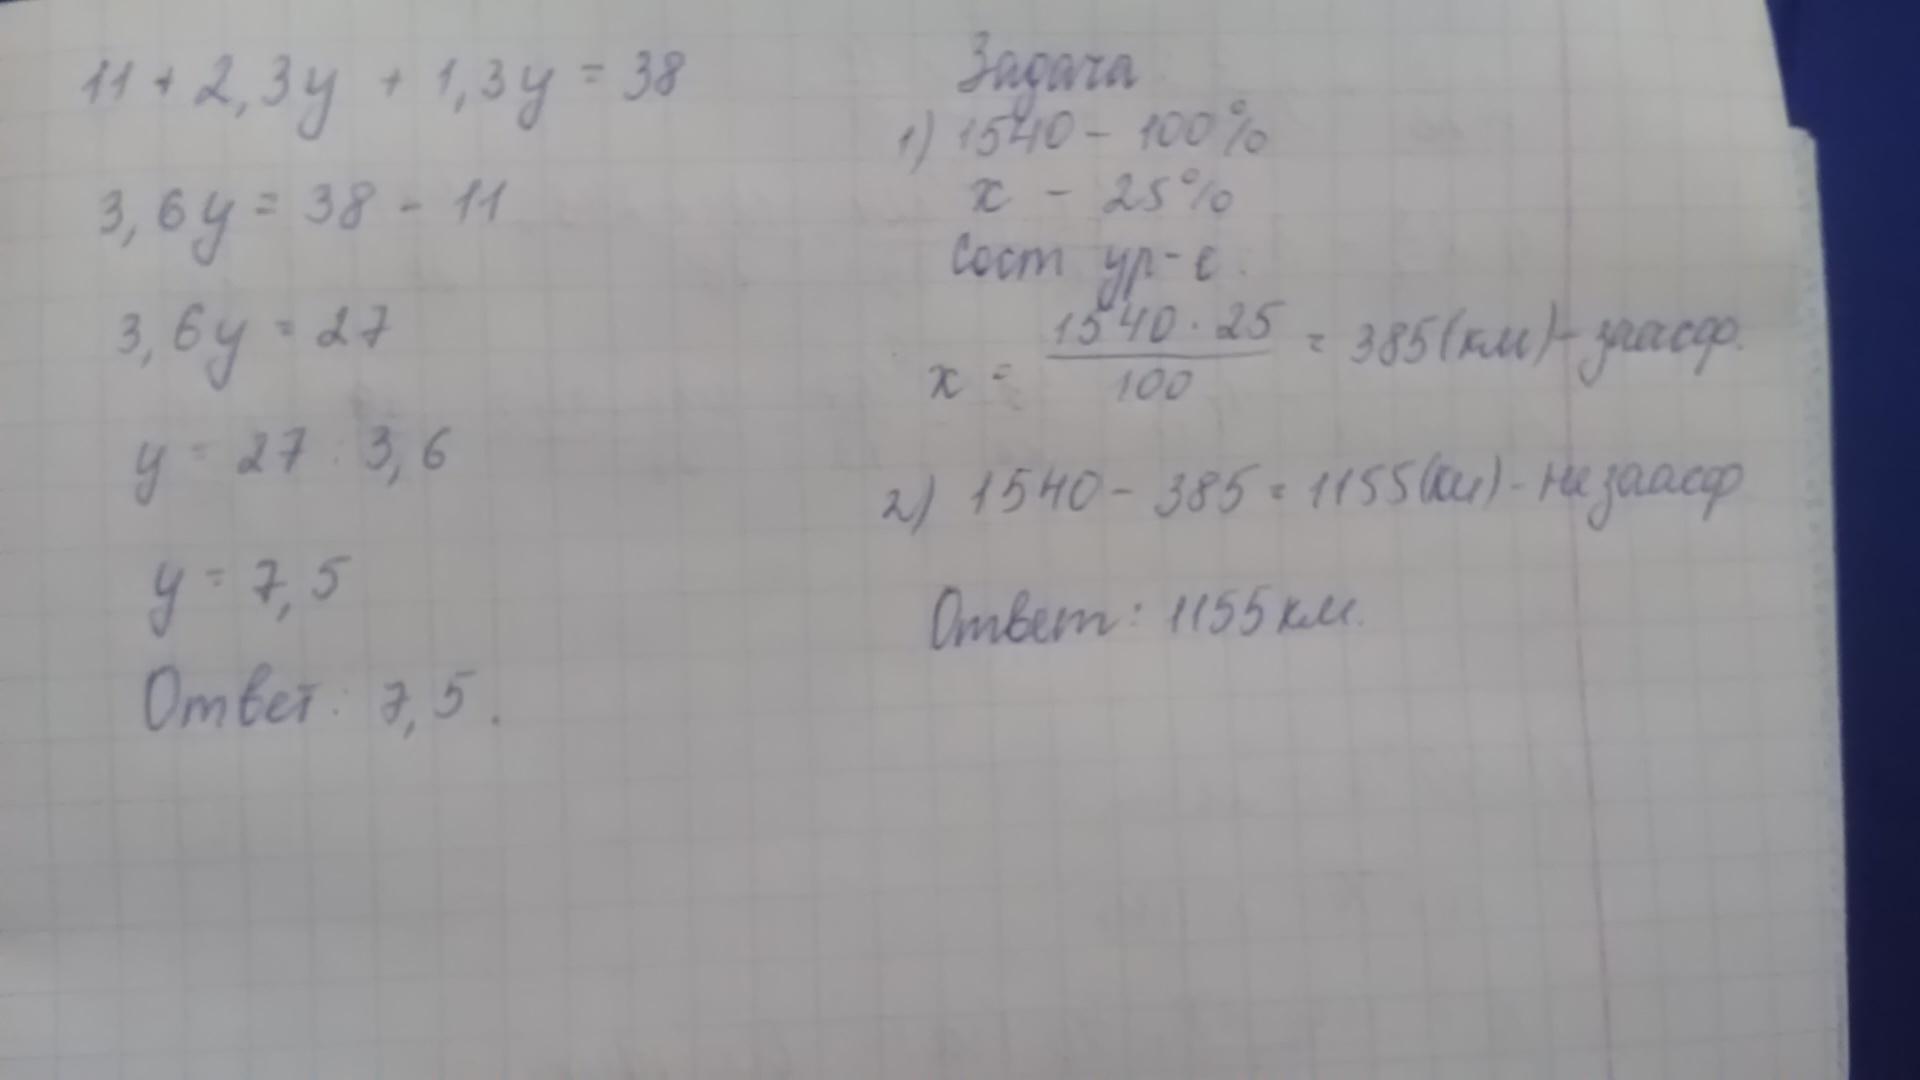 11 + 2,3y + 1,3y = 38
3,6y = 38 - 11
3,6y = 27
y = 27 : 3,6
y = 7,5
Ответ: 7,5.
Задача
1) 1540 - 100%
x - 25%
Сост ур-е.
x = \frac{1540 · 25}{100} = 385(км) - заасф.
2) 1540 - 385 = 1155(км) - не заасф
Ответ: 1155 км.